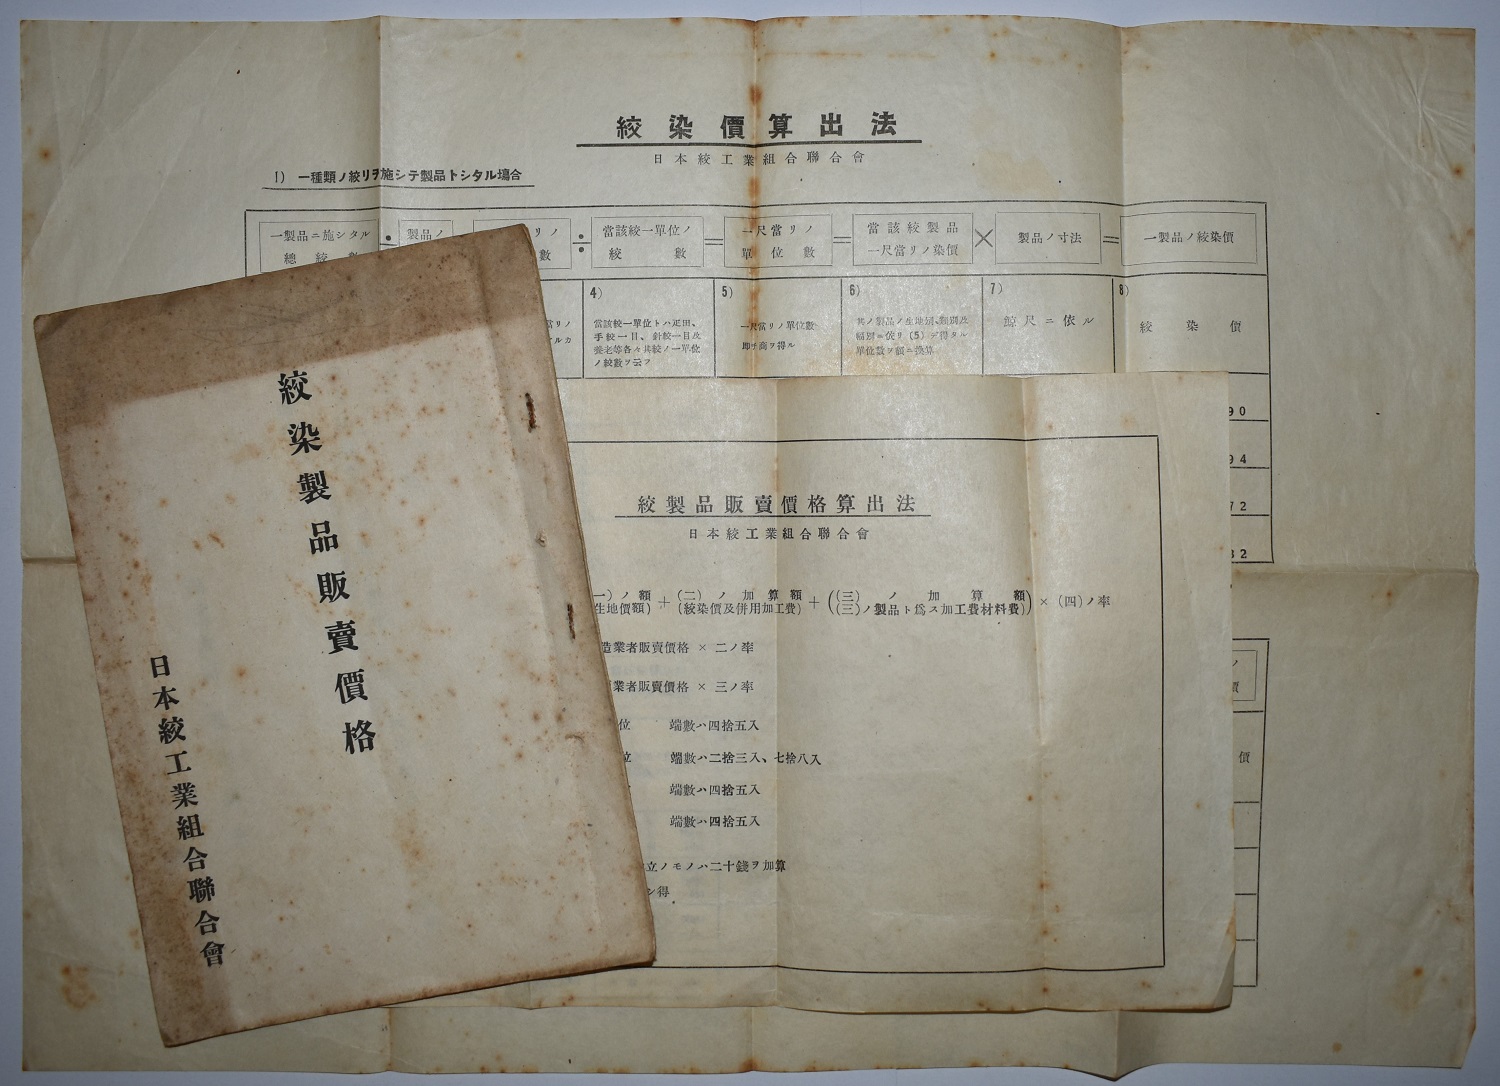 絞染價算出法
日本絞工業組合聯合會
1) 一種類ノ絞リヲ施シテ製品トシタル場合
一製品ニ施シタル
總絞數
÷
製品ノ
リノ
數
÷
當該絞一單位ノ
絞數
=
一尺當リノ
單位數
=
當該絞製品
一尺當リノ染價
×
製品ノ寸法
=
一製品ノ絞染價
當リノ
ルカ
4)
當該絞一單位トハ疋田、
手絞一目、針絞一目及
養老等各々其絞ノ一單位
ノ絞數ヲ云フ
5)
一尺當リノ單位數
即チ商ヲ得ル
6)
其ノ製品ノ生地別、類別及
幅別ニ依リ(5)デ得タル
單位數ヲ額ニ換算
7)
鯨尺ニ依ル
8)
絞染價
90
94
72
32
ノ
價
價
絞製品販賣價格算出法
日本絞工業組合聯合會
一)ノ額
生地價額)
+
(二)ノ加算額
(絞染價及併用加工費)
+
((三)ノ加算額
(三)ノ製品ト爲ス加工費材料費)
× (四)ノ率
造業者販賣價格 × 二ノ率
業者販賣價格 × 三ノ率
位 端數ハ四捨五入
位 端數ハ二捨三入、七捨八入
端數ハ四捨五入
端數ハ四捨五入
立ノモノハ二十錢ヲ加算
シ得
絞染製品販賣價格
日本絞工業組合聯合會